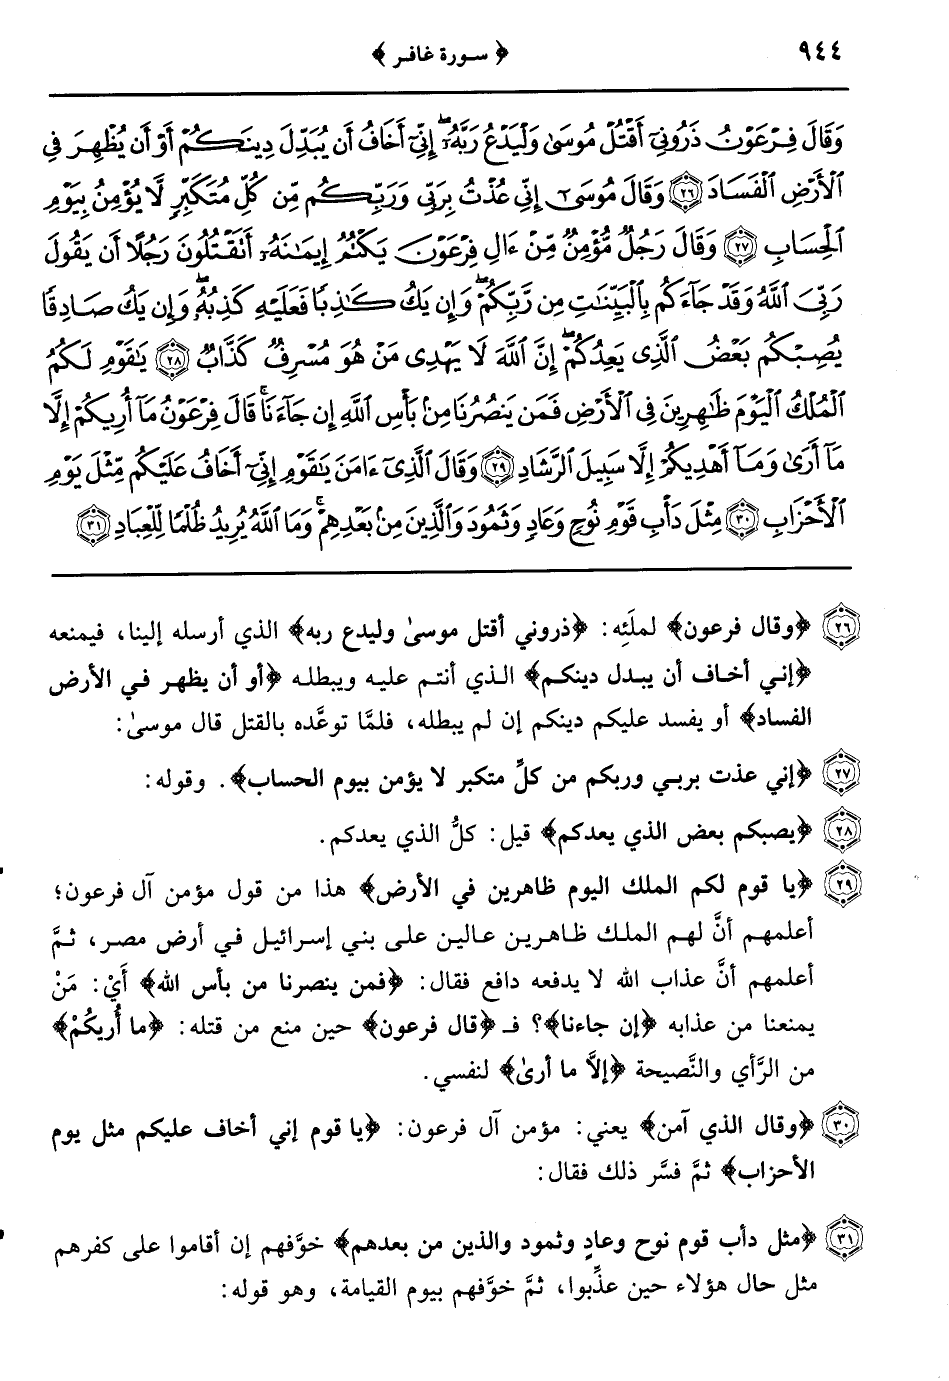 ٩٤٤ ﴿ سورة غافر ﴾
وَقَالَ فِرْعَوْنُ ذَرُونِىٓ أَقْتُلْ مُوسَىٰ وَلْيَدْعُ رَبَّهُۥٓ ۖ إِنِّىٓ أَخَافُ أَن يُبَدِّلَ دِينَكُمْ أَوْ أَن يُظْهِرَ فِى
ٱلْأَرْضِ ٱلْفَسَادَ ﴿٢٦﴾ وَقَالَ مُوسَىٰٓ إِنِّى عُذْتُ بِرَبِّى وَرَبِّكُم مِّن كُلِّ مُتَكَبِّرٍ لَّا يُؤْمِنُ بِيَوْمِ
ٱلْحِسَابِ ﴿٢٧﴾ وَقَالَ رَجُلٌ مُّؤْمِنٌ مِّنْ ءَالِ فِرْعَوْنَ يَكْتُمُ إِيمَٰنَهُۥٓ أَتَقْتُلُونَ رَجُلًا أَن يَقُولَ
رَبِّىَ ٱللَّهُ وَقَدْ جَآءَكُم بِٱلْبَيِّنَٰتِ مِن رَّبِّكُمْ ۖ وَإِن يَكُ كَٰذِبًا فَعَلَيْهِ كَذِبُهُۥ ۖ وَإِن يَكُ صَادِقًا
يُصِبْكُم بَعْضُ ٱلَّذِى يَعِدُكُمْ ۖ إِنَّ ٱللَّهَ لَا يَهْدِى مَنْ هُوَ مُسْرِفٌ كَذَّابٌ ﴿٢٨﴾ يَٰقَوْمِ لَكُمُ
ٱلْمُلْكُ ٱلْيَوْمَ ظَٰهِرِينَ فِى ٱلْأَرْضِ فَمَن يَنصُرُنَا مِنۢ بَأْسِ ٱللَّهِ إِن جَآءَنَا ۚ قَالَ فِرْعَوْنُ مَآ أُرِيكُمْ إِلَّا
مَآ أَرَىٰ وَمَآ أَهْدِيكُمْ إِلَّا سَبِيلَ ٱلرَّشَادِ ﴿٢٩﴾ وَقَالَ ٱلَّذِىٓ ءَامَنَ يَٰقَوْمِ إِنِّىٓ أَخَافُ عَلَيْكُم مِّثْلَ يَوْمِ
ٱلْأَحْزَابِ ﴿٣٠﴾ مِثْلَ دَأْبِ قَوْمِ نُوحٍ وَعَادٍ وَثَمُودَ وَٱلَّذِينَ مِنۢ بَعْدِهِمْ ۚ وَمَا ٱللَّهُ يُرِيدُ ظُلْمًا لِّلْعِبَادِ ﴿٣١﴾
٢٦ ﴿وقال فرعون﴾ لملَئِه: ﴿ذروني أقتل موسىٰ وليدع ربه﴾ الذي أرسله إلينا، فيمنعه
﴿إني أخاف أن يبدل دينكم﴾ الذي أنتم عليه ويبطله ﴿أو أن يظهر في الأرض
الفساد﴾ أو يفسد عليكم دينكم إن لم يبطله، فلمَّا توعَّده بالقتل قال موسىٰ:
٢٧ ﴿إني عذت بربي وربكم من كلِّ متكبر لا يؤمن بيوم الحساب﴾. وقوله:
٢٨ ﴿يصبكم بعض الذي يعدكم﴾ قيل: كلُّ الذي يعدكم.
٢٩ ﴿يا قوم لكم الملك اليوم ظاهرين في الأرض﴾ هذا من قول مؤمن آل فرعون؛
أعلمهم أنَّ لهم الملك ظاهرين عالين على بني إسرائيل في أرض مصر، ثمَّ
أعلمهم أنَّ عذاب الله لا يدفعه دافع فقال: ﴿فمن ينصرنا من بأس الله﴾ أَيْ: مَنْ
يمنعنا من عذابه ﴿إن جاءنا﴾؟ فـ ﴿قال فرعون﴾ حين منع من قتله: ﴿ما أُريكُمْ﴾
من الرَّأي والنَّصيحة ﴿إلاَّ ما أرىٰ﴾ لنفسي.
٣٠ ﴿وقال الذي آمن﴾ يعني: مؤمن آل فرعون: ﴿يا قوم إني أخاف عليكم مثل يوم
الأحزاب﴾ ثمَّ فسَّر ذلك فقال:
٣١ ﴿مثل دأب قوم نوح وعادٍ وثمود والذين من بعدهم﴾ خوَّفهم إن أقاموا على كفرهم
مثل حال هؤلاء حين عذِّبوا، ثمَّ خوَّفهم بيوم القيامة، وهو قوله: